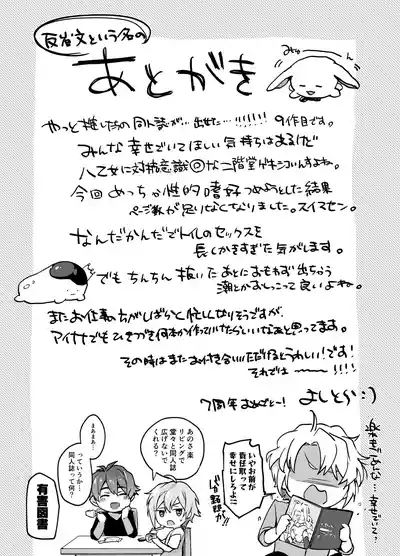 反省文という名の
あとがき
みゃん
やっと推したちの同人誌が…出せた…!!!!!! 9作目です。
みんな幸せでいてほしい気持ちはあるけど
八乙女に対抗意識◎な二階堂がキンコいんすよね。
今回めっちゃ性的嗜好つめようとした結果
ページ数が足りなくなりました。スイマセン。
なんだかんだでトイレのセックスを
長くかきすぎた気がします。
でもちんちん抜いたあとにおもわず出ちゃう
潮とかおしっこって良いよね。
またお仕事がしばらく忙しくなりそうですが、
アイナナでもひきつづき何本か作っていけたらいいなあと思ってます。
その時はまたお付き合いいただけるとうれしい!です!
それでは〜〜〜!!!!
7周年おめでとー!
よしとら:)
あのさ楽
リビングで
堂々と同人誌
広げないで
くれる?
まあまあ…
っていうか
同人誌って何?
いやお前が
責任取って
幸せにしろよ!!
有害図書
幸せでいて…?